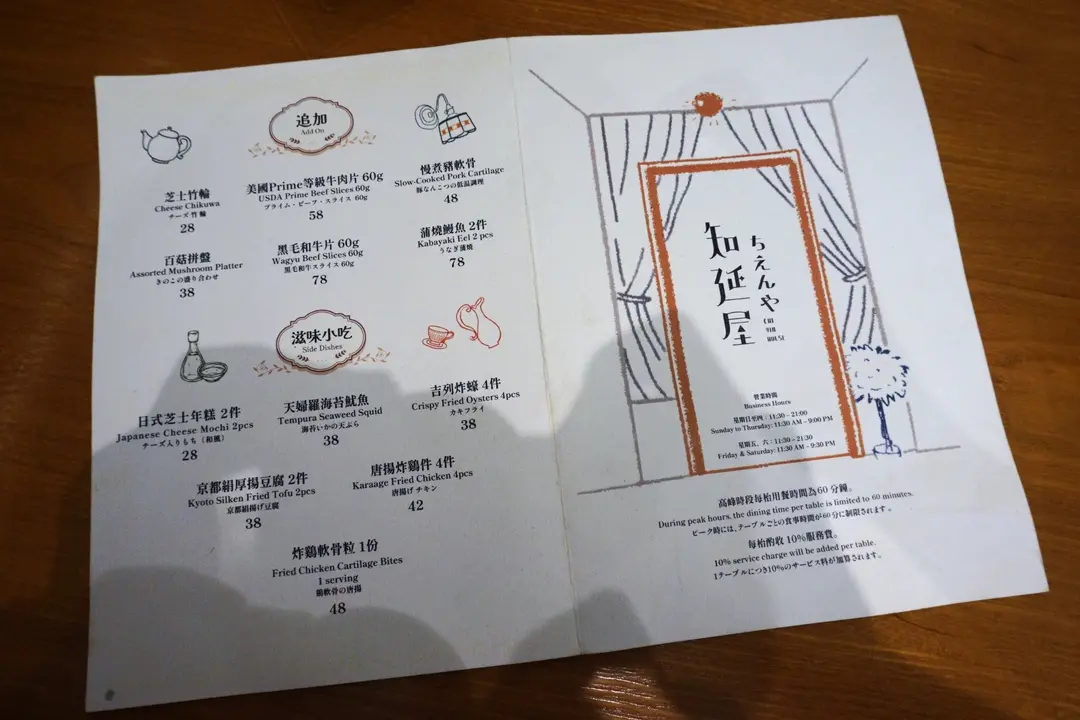 追加
Add On
芝士竹輪
Cheese Chikuwa
チーズ竹輪
28
百菇拼盤
Assorted Mushroom Platter
きのこの盛り合わせ
38
美國Prime等級牛肉片 60g
USDA Prime Beef Slices 60g
プライム・ビーフ・スライス 60g
58
黑毛和牛片 60g
Wagyu Beef Slices 60g
黒毛和牛スライス 60g
78
慢煮豬軟骨
Slow-Cooked Pork Cartilage
豚なんこつの低温調理
48
蒲燒鰻魚 2件
Kabayaki Eel 2 pcs
うなぎ蒲焼
78
滋味小吃
Side Dishes
日式芝士年糕 2件
Japanese Cheese Mochi 2pcs
チーズ入りもち（和風）
28
天婦羅海苔魷魚
Tempura Seaweed Squid
海苔いかの天ぷら
38
吉列炸蠔 4件
Crispy Fried Oysters 4pcs
カキフライ
38
京都絹厚揚豆腐 2件
Kyoto Silken Fried Tofu 2pcs
京都絹揚げ豆腐
38
唐揚炸鷄件 4件
Karaage Fried Chicken 4pcs
唐揚げチキン
42
炸鷄軟骨粒 1份
Fried Chicken Cartilage Bites
1 serving
鶏軟骨の唐揚
48
知延屋
ちえんや
CHI
YIN
HOUSE
營業時間
Business Hours
星期日至四：11:30 – 21:00
Sunday to Thursday: 11:30 AM – 9:00 PM
星期五、六：11:30 – 21:30
Friday & Saturday: 11:30 AM – 9:30 PM
高峰時段每枱用餐時間為60 分鐘。
During peak hours, the dining time per table is limited to 60 minutes.
ピーク時には、テーブルごとの食事時間が 60 分に制限されます。
每枱酌收 10%服務費。
10% service charge will be added per table.
1テーブルにつき10%のサービス料が加算されます。